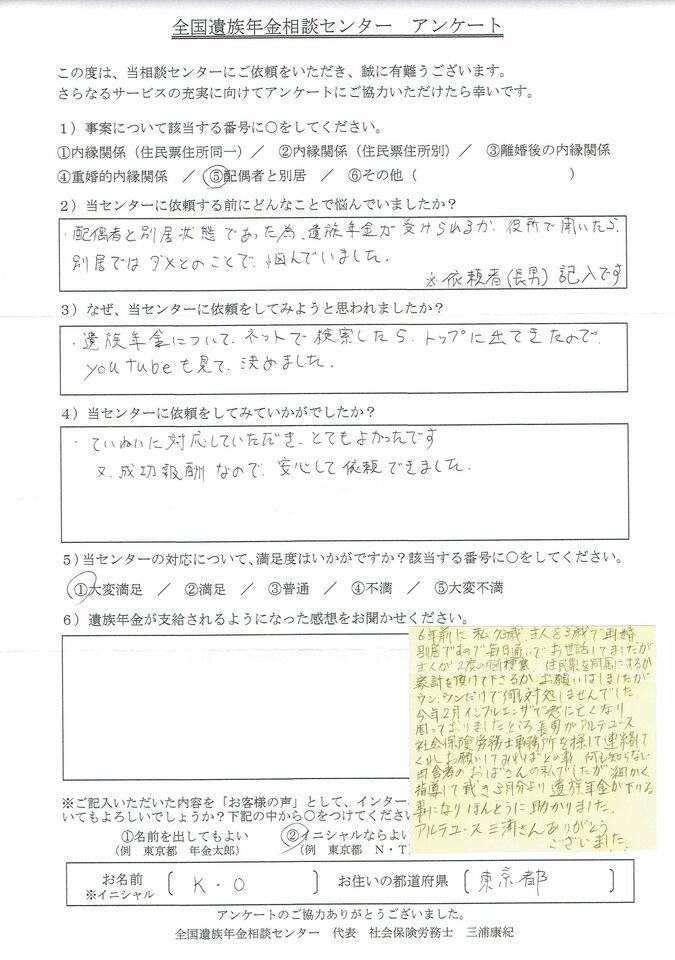 全国遺族年金相談センター　アンケート
この度は、当相談センターにご依頼をいただき、誠に有難うございます。
さらなるサービスの充実に向けてアンケートにご協力いただけたら幸いです。
1）事案について該当する番号に〇をしてください。
①内縁関係（住民票住所同一）／　②内縁関係（住民票住所別）／　③離婚後の内縁関係
④重婚的内縁関係　／　⑤配偶者と別居　／　⑥その他（　　　　　　　　　）
2）当センターに依頼する前にどんなことで悩んでいましたか？
・配偶者と別居状態であった為、遺族年金が受けられるか、役所で聞いたら、
別居ではダメとのことで、悩んでいました。
※依頼者（長男）記入です
3）なぜ、当センターに依頼をしてみようと思われましたか？
・遺族年金について、ネットで検索したら、トップに出てきたので、
youtubeも見て、決めました。
4）当センターに依頼をしてみていかがでしたか？
・ていねいに対応していただき、とてもよかったです
又、成功報酬なので、安心して依頼できました。
5）当センターの対応について、満足度はいかがですか？該当する番号に〇をしてください。
①大変満足　／　②満足　／　③普通　／　④不満　／　⑤大変不満
6）遺族年金が支給されるようになった感想をお聞かせください。
6年前に私73歳、主人83歳で再婚
別居ですので毎日通いでお世話してましたが
主人が2度の脳梗塞、住民票を同居にするか
家計を頂けて下さるかお願いはしましたが
ウン、ウンだけで何も対処しませんでした
今年2月インフルエンザで急に亡くなり
困っておりましたところ長男がアルテユース
社会保険労務士事務所を探して連絡して
くれお願いしてみればとの事　何も知らない
田舎者のおばさんの私でしたが細かく
指導して戴き3月分より遺族年金が下りる
事になりほんとうに助かりました。
アルテユース三浦さんありがとう
ございました。
※ご記入いただいた内容を「お客様の声」として、インター
いてもよろしいでしょうか？下記の中から〇をつけてくださ
①名前を出してもよい　　②イニシャルならよい
（例　東京都　年金太郎）　（例　東京都　N・T）
お名前　〔　K．O　〕　お住いの都道府県　〔　東京都　〕
※イニシャル
アンケートのご協力ありがとうございました。
全国遺族年金相談センター　代表　社会保険労務士　三浦康紀